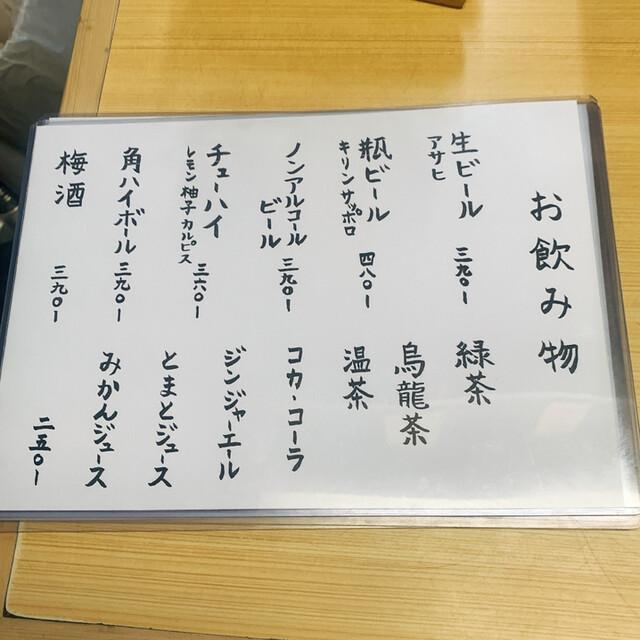 お飲み物
生ビール
アサヒ
三九〇ー
瓶ビール
キリン サッポロ
四八〇ー
ノンアルコール
ビール
三九〇ー
チューハイ
レモン 柚子 カルピス
三六〇ー
角ハイボール 三九〇ー
梅酒
三九〇ー
緑茶
烏龍茶
温茶
コカ・コーラ
ジンジャーエール
とまとジュース
みかんジュース
二五〇ー